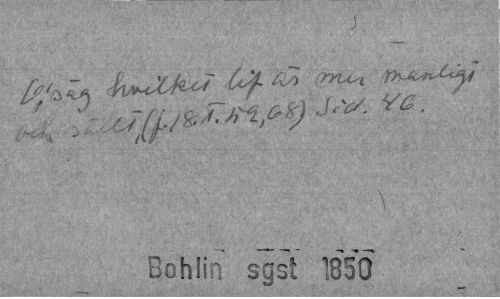 O! säg hvilket lif är mer manligt
och sällt, (f. 18. I. 59, 68) Sid. 46.
Bohlin sgst 1850